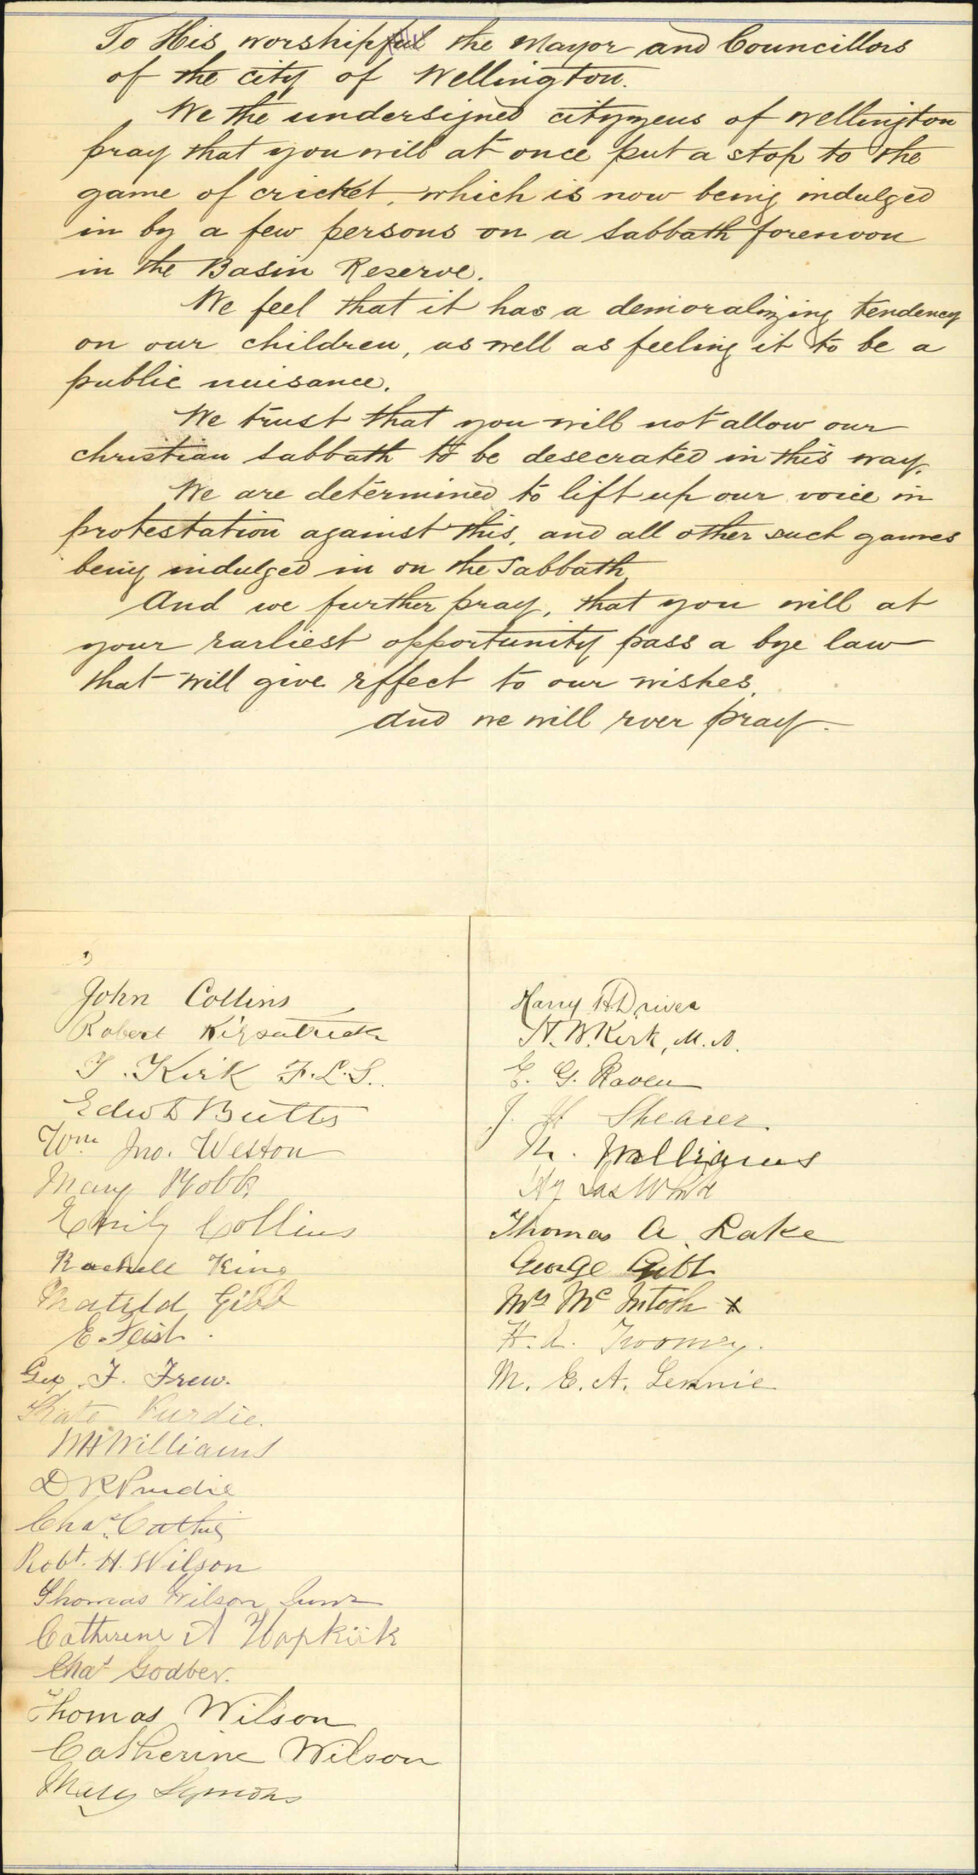 To His worship the Mayor and Councillors
of the city of Wellington.
We the undersigned cityzens of Wellington
pray that you will at once put a stop to the
game of cricket, which is now being indulged
in by a few persons on a Sabbath forenoon
in the Basin Reserve.
We feel that it has a demoralizing tendency
on our children, as well as feeling it to be a
public nuisance.
We trust that you will not allow our
christian Sabbath to be desecrated in this way.
We are determined to lift up our voice in
protestation against this, and all other such games
being indulged in on the Sabbath,
And we further pray, that you will at
your earliest opportunity pass a bye law
that will give effect to our wishes.
And we will ever pray.
John Collins
Robert Kirpatrick
T. Kirk F.L.S.
Edwd Butts
Wm Jno. Weston
Mary
Emily Collins
Rachell King
Gibb
E. Feist.
Geo. F. Frew.
Kate Purdie.
Williams
D R Purdie
Chas.
Robt. H. Wilson
Thomas Wilson Junr
Catherine A
Chas Godber.
Thomas Wilson
Catherine Wilson
Mary Symons
Harry H Driver
H. W. Kirk, M.A.
E. G. Raven
J. H Shearer.
Williams
Thomas A. Lake
George Gibb
Mrs McIntosh x
H. L.
M. E. A. Lennie